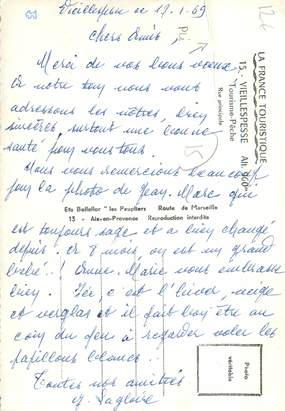 Vieillespesse le 19-1-69
Chers Amis,
Merci de vos bons voeux
à notre tour nous vous
adressons les nôtres, bien
sincères, surtout une bonne
santé pour vous tous.
Nous vous remercions beaucoup
pour la photo de Jean-Marc qui
est toujours sage et a bien changé
depuis 8 mois, on est un grand
bébé!! Anne-Marie vous embrasse
bien. Ici, c'est l'hiver, neige
et verglas et il fait bon être au
coin du feu à regarder voler les
papillons blancs.
Toutes nos amitiés
LA FRANCE TOURISTIQUE
15. - VIEILLESPESSE Alt. 900
Tourisme-Pêche
Rue principale
Ets Bellollor "les Peupliers Route de Marseille
13 - Aix-en-Provence Reproduction interdite
Photo
véritable
15